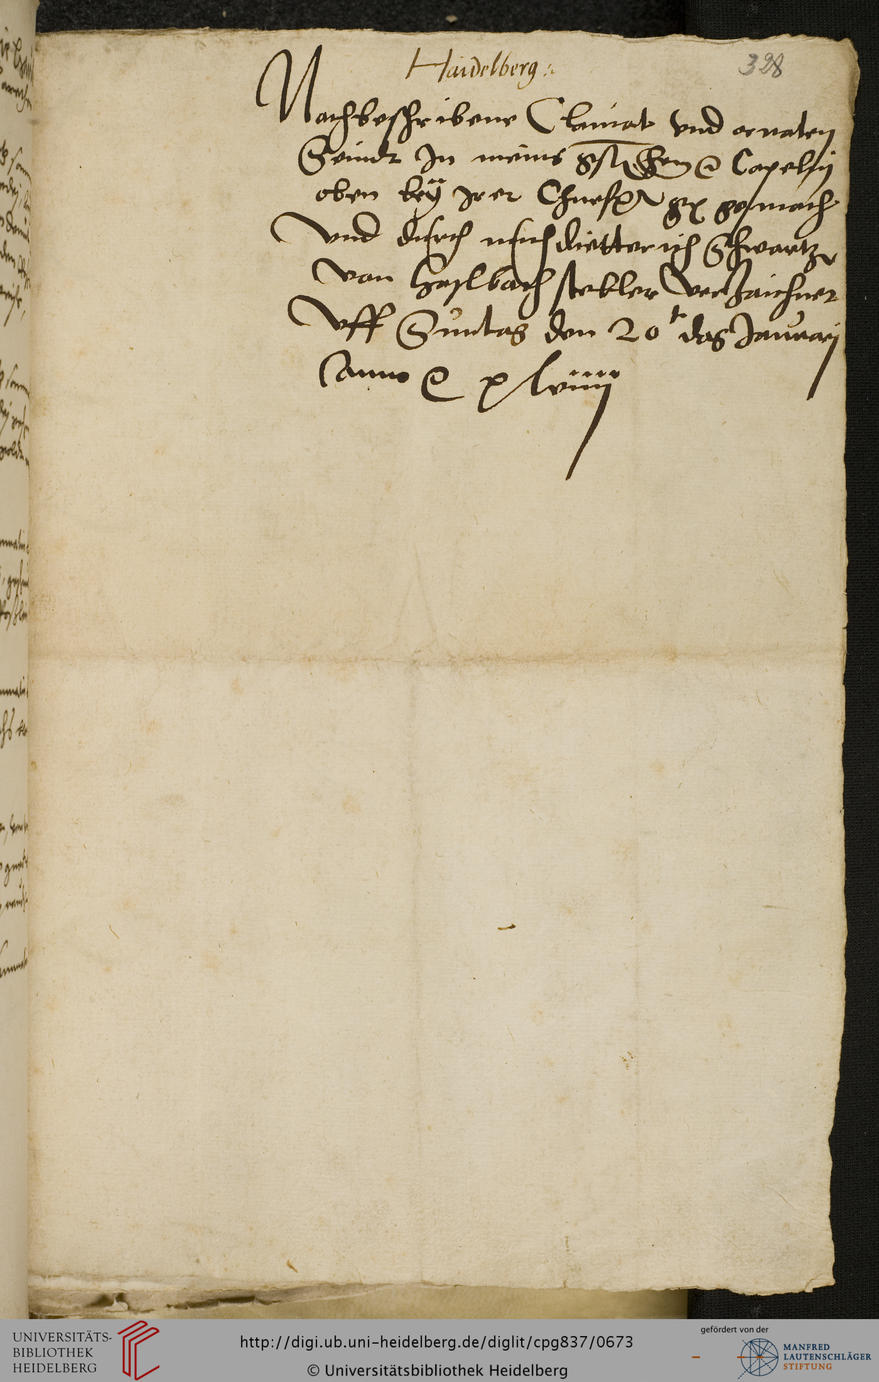 Haidelberg
328
Nachbeschribene Clainat vnd ornaten
Seindt In meins gst hern Capelln
oben bey irer Churf g gemach
vnd durch mich dietterich Schwartz
von haslbach stebler verzaichnet
Vff Suntag den 20t das Januarij
Anno lviiij
UNIVERSITÄTS-
BIBLIOTHEK
HEIDELBERG
http://digi.ub.uni-heidelberg.de/diglit/cpg837/0673
© Universitätsbibliothek Heidelberg
gefördert von der
MANFRED
LAUTENSCHLÄGER
STIFTUNG